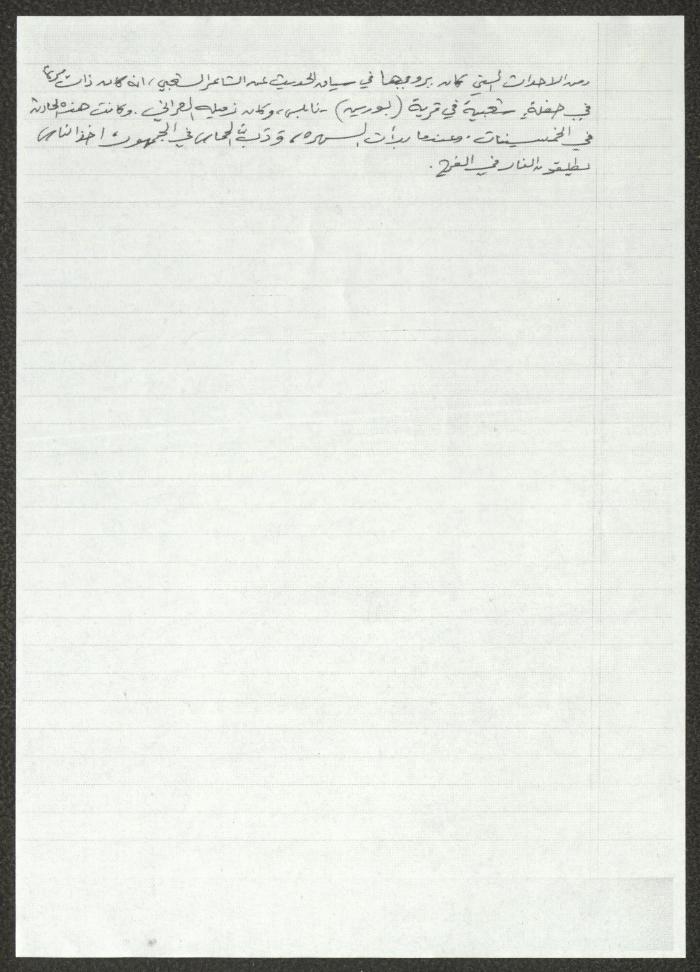 ومن الاحداث التي كان يرويها في سياق الحديث عن الشاعر الشعبي، انه كان ذات مرة
في حفلةٍ شعبية في قرية (بورين) - نابلس، وكان زميله الحراني. وكانت هذه الحادثة
في الخمسينات. وعندما بدأت السهره، ودَبَّ الحماس في الجمهور، اخذ الناس
يطلقون النار في الفرح.